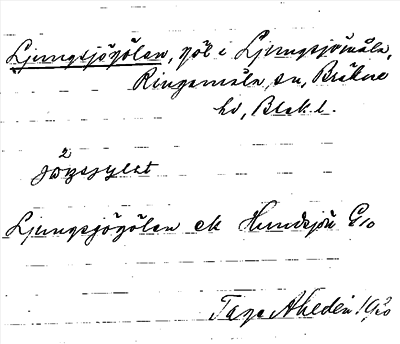 Ljungsjögölen, göl i Ljungsjömåla,
Ringamåla sn, Bräkne
hd, Blek. l.
2
Ljungsjögölen ek Hundsjön G10
Tage Ahldén 1920